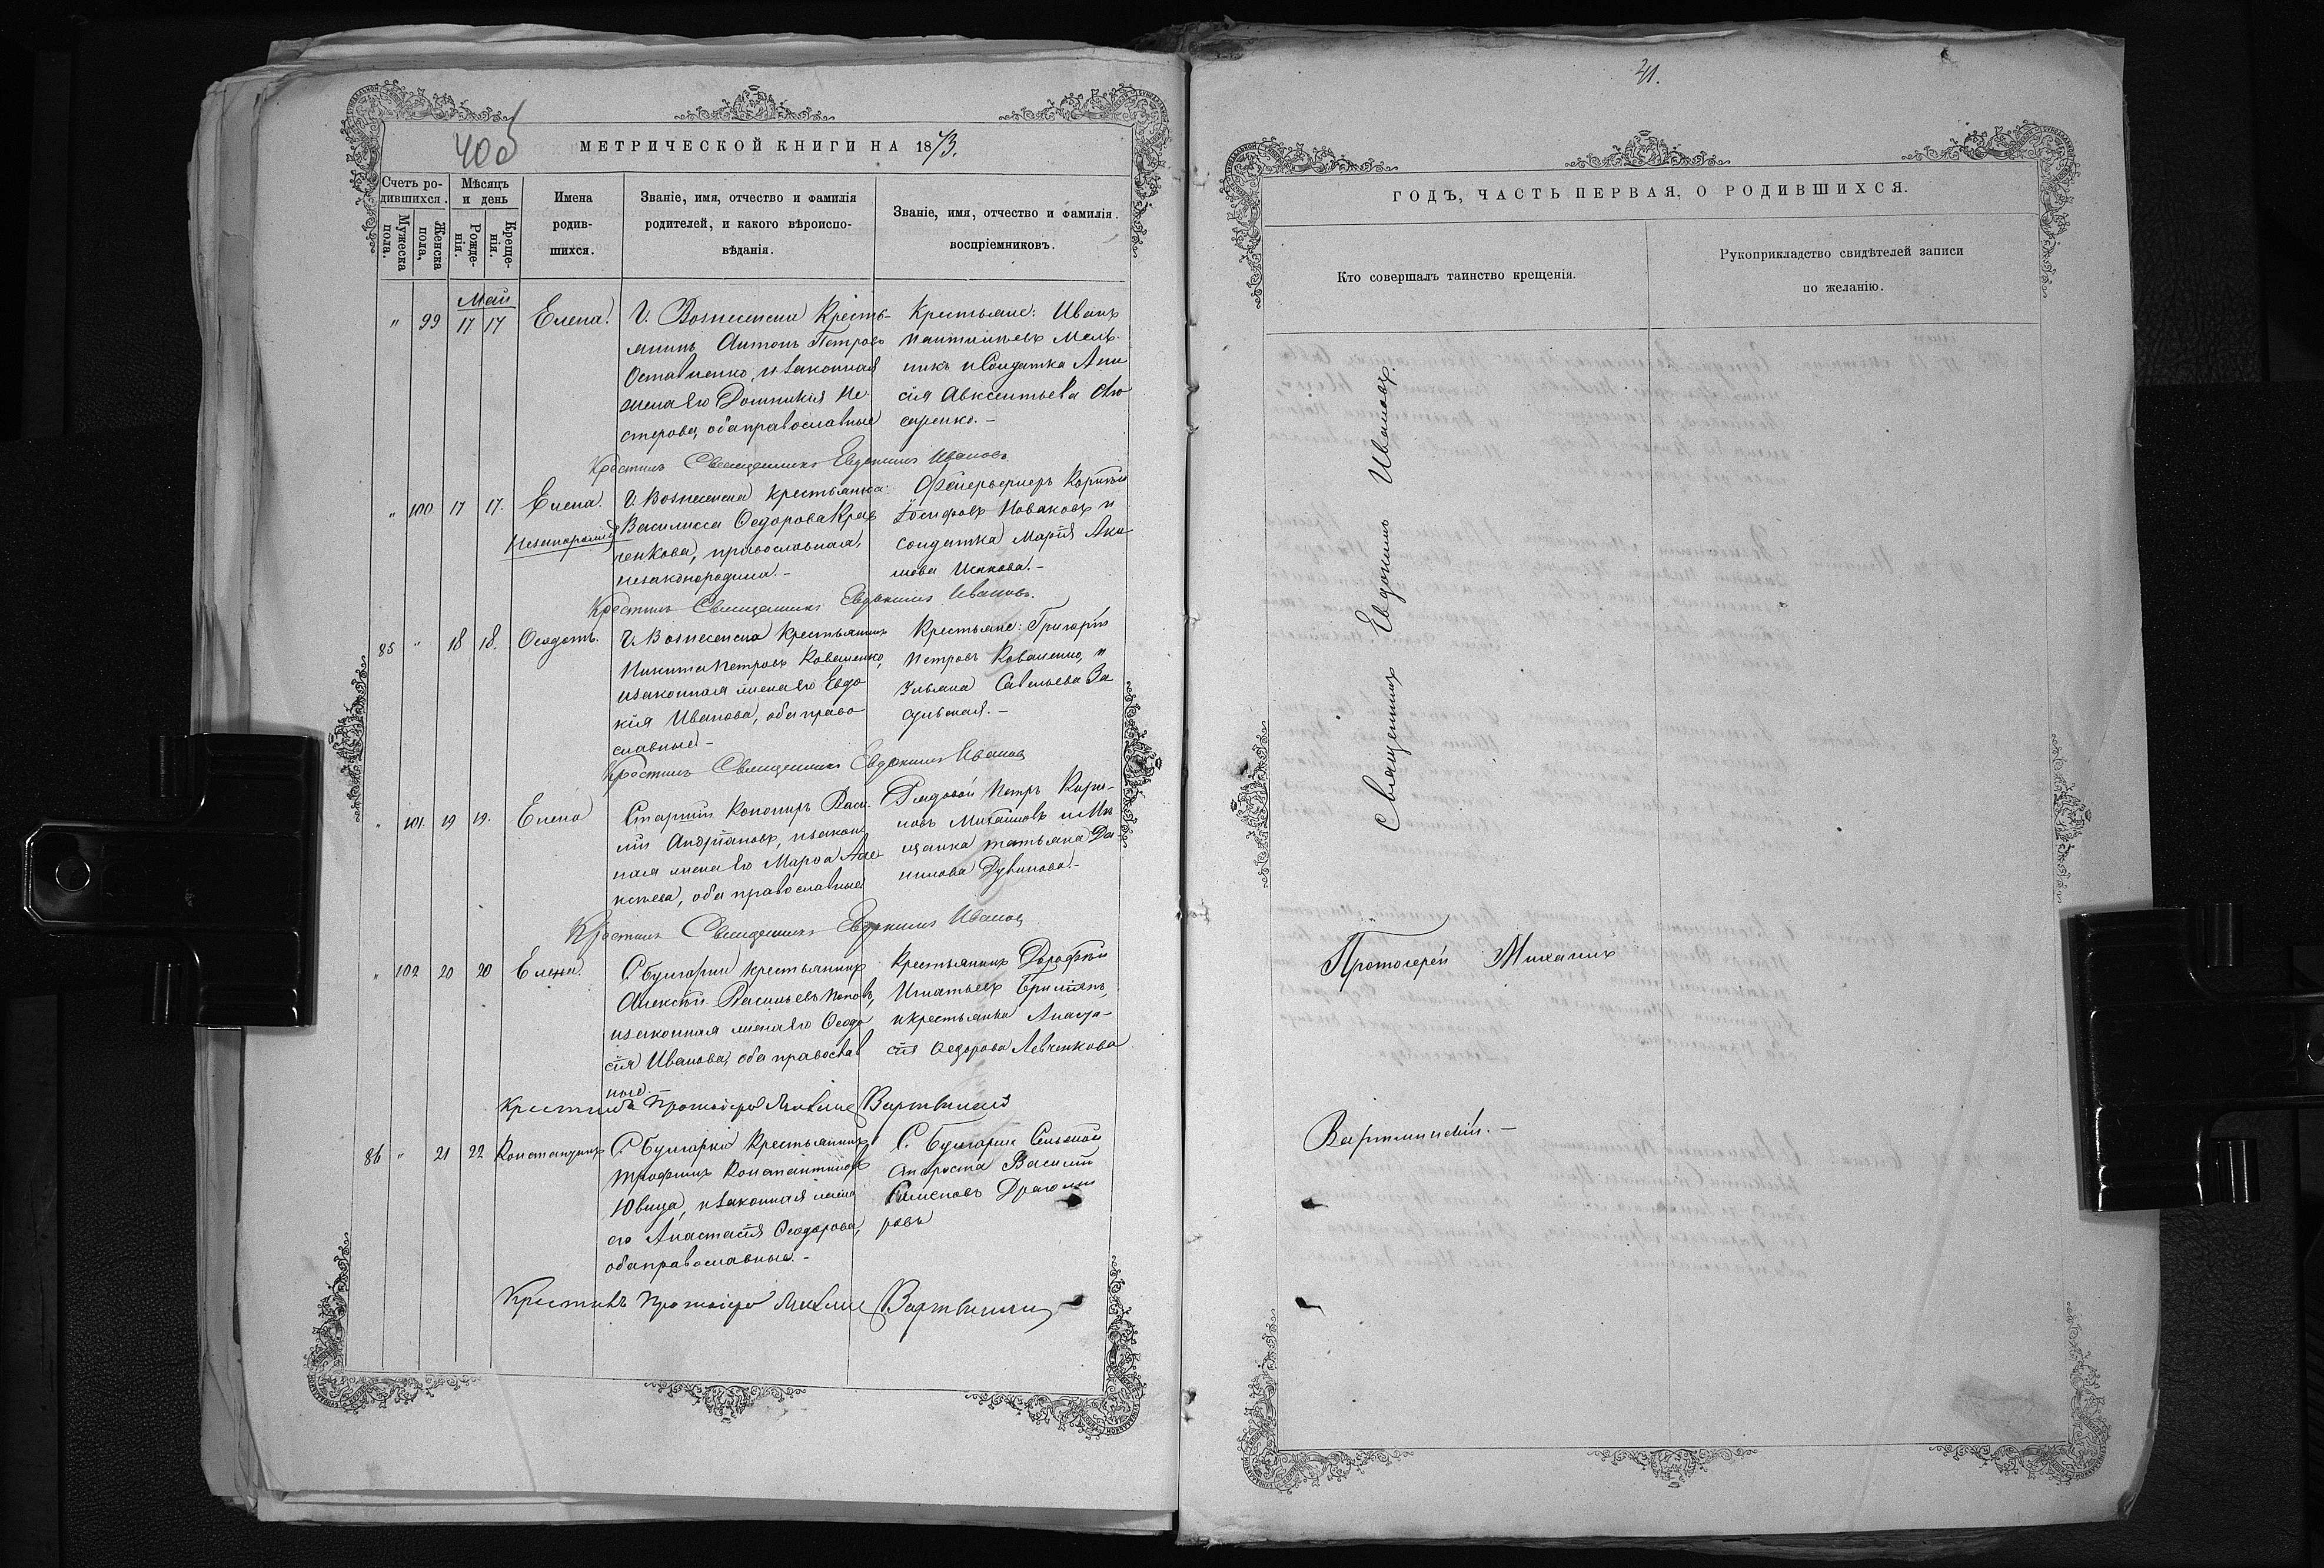 40об
МЕТРИЧЕСКОЙ КНИГИ НА 1873.
Счетъ ро-
дившихся.
Мужеска
пола.
Женска
пола,
Мѣсяцъ
и день
Рожде-
нія.
Креще-
нія.
Имена
родив-
шихся.
Званіе, имя, отчество и фамилія
родителей, и какого вѣроиспо-
вѣданія.
Званіе, имя, отчество и фамилія.
воспріемниковъ.
Май
" 99 17 17 Елена.
Г. Вознесенска Кресть-
янинъ Антонъ Петровъ
Оставненко, и законная
жена его Домникія Не
стерова, оба православные
Крестьяне: Иванъ
Пантилѣевъ Мель
никъ и Солдатка Ани
сія Авксентьева
саренко.-
Крестилъ Священникъ Евдокимъ Ивановъ.
" 100 17 17. Елена.
Незаконорожд
Г. Вознесенска Крестьянка
Василисса Ѳедорова Крав
ченкова, православная,
незаконорождена.-
Фейерверкеръ Корнѣй
Іосифовъ Новаковъ и
солдатка Марія Аки
мова Исакова.-
Крестилъ Священникъ Евдокимъ Ивановъ.
85 " 18 18. Ѳеодотъ.
Г. Вознесенска Крестьянинъ
Никита Петровъ Коваленко,
и законная жена его Евдо
кія Иванова, оба право
славные-
Крестьяне: Григорій
Петровъ Коваленко, и
Ульяна Савельева За
сульская.-
Крестилъ Священникъ Евдокимъ Ивановъ
" 101. 19 19. Елена
Старшій Канониръ Васи
лій Андріановъ, и закон
ная жена его Марѳа Але
ксѣева, оба православные
Рядовой Петръ Кири-
ловъ Михайловъ и Мѣ
щанка Татьяна Да-
нилова Дувинова.-
Крестилъ Священникъ Евдокимъ Ивановъ
" 102 20 20 Елена.
С. Булгарки Крестьянинъ
Алексѣй Васильевъ Поповъ,
и законная жена его Ѳеодо
сія Иванова, оба православ
ные.
Крестьянинъ Дорофѣй
Игнатьевъ
и крестьянка Анаста-
сія Ѳедорова Левченкова
Крестилъ Протоіерей Михаилъ Вартминскій
86 " 21 22 Константинъ
С. Булгарки Крестьянинъ
Трофимъ Константиновъ
Ювица, и законная жена
его Анастасія Ѳеодорова,
оба православные.-
С. Булгарки Сельскій
староста Василій
Семеновъ Драгоми
ровъ
Крестилъ Протоіерей Михаилъ Вартминскій
41.
ГОДЪ, ЧАСТЬ ПЕРВАЯ, О РОДИВШИХСЯ.
Кто совершалъ таинство крещенія.
Рукоприкладство свидѣтелей записи
по желанію.
Священникъ Евдокимъ Ивановъ.
Протоіерей Михаилъ
Вартминскій.-